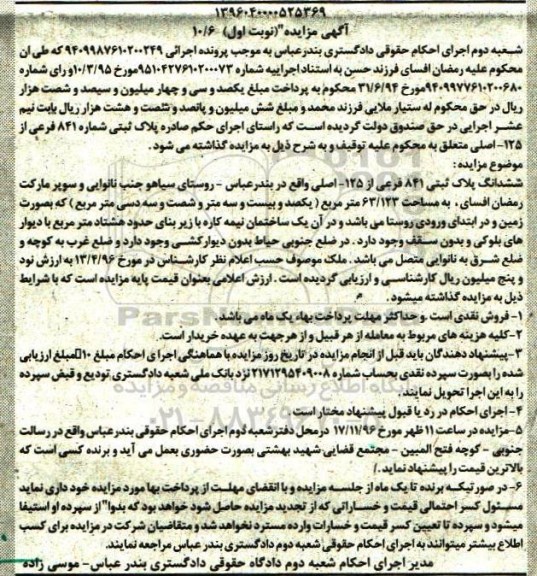 ۱۳۹۶۰۴۰۰۰۰۵۲۵۳۶۹
آگهی مزایده "(نوبت اول) ۱۰/۶
شعبه دوم اجرای احکام حقوقی دادگستری بندرعباس به موجب پرونده اجرائی ۹۴۰۹۹۸۷۶۱۰۲۰۰۲۴۹ که طی ان
محکوم علیه رمضان افسای فرزند حسن به استناد اجراییه شماره ۹۵۱۰۴۲۷۶۱۰۲۰۰۰۷۳مورخ ۱۰/۳/۹۵و رای شماره
۹۴۰۹۹۷۷۶۱۰۲۰۰۶۸۰مورخ ۳۱/۶/۹۴ محکوم به پرداخت مبلغ یکصد و سی و چهار میلیون و سیصد و شصت هزار
ریال در حق محکوم له ستیار ملایی فرزند محمد و مبلغ شش میلیون و پانصد و شصت و هشت هزار ریال بابت نیم
عشر اجرایی در حق صندوق دولت گردیده است که راستای اجرای حکم صادره پلاک ثبتی شماره ۸۴۱ فرعی از
۱۲۵- اصلی متعلق به محکوم علیه توقیف و به شرح ذیل به مزایده گذاشته می شود.
موضوع مزایده :
ششدانگ پلاک ثبتی ۸۴۱ فرعی از ۱۲۵- اصلی واقع در بندرعباس - روستای سیاهو جنب نانوایی و سوپر مارکت
رمضان افسای، به مساحت ۶۳/۱۲۳ متر مربع ( یکصد و بیست و سه متر و شصت و سه دسی متر مربع ) که بصورت
زمین و در ابتدای ورودی روستا می باشد و در آن یک ساختمان نیمه کاره با زیر بنای حدود هشتاد متر مربع با دیوار
های بلوکی و بدون سقف وجود دارد . در ضلع جنوبی حیاط بدون دیوارکشی وجود دارد و ضلع غرب به کوچه و
ضلع شرق به نانوایی متصل می باشد . ملک موصوف حسب اعلام نظر کارشناس در مورخ ۱۳/۴/۹۶ به ارزش نود
و پنج میلیون ریال کارشناسی و ارزیابی گردیده است . ارزش اعلامی بعنوان قیمت پایه مزایده است که با شرایط
ذیل به مزایده گذاشته میشود.
۱- فروش نقدی است .و حداکثر مهلت پرداخت بهاء یک ماه می باشد .
۲-کلیه هزینه های مربوط به معامله از هر قبیل و از هر جهت به عهده خریدار است.
۳-پیشنهاد دهندگان باید قبل از انجام مزایده در تاریخ روز مزایده با هماهنگی اجرا ی احکام مبلغ ۱۰٪مبلغ ارزیابی
شده را بصورت سپرده نقدی بحساب شماره ۲۱۷۱۲۹۵۴۰۹۰۰۸ نزد بانک ملی شعبه دادگستری تودیع و قبض سپرده
را به این اجرا تحویل نمایند.
۴- اجرای احکام در رد یا قبول پیشنهاد مختار است .
۵-مزایده در ساعت ۱۱ ظهر مورخ ۱۷/۱۱/۹۶ درمحل دفترشعبه دوم اجرای احکام حقوقی بندرعباس واقع در رسالت
جنوبی - کوچه فتح المبین - مجتمع قضایی شهید بهشتی بصورت حضوری بعمل می آید و برنده کسی است که
بالاترین قیمت را پیشنهاد نماید ./
۶- در صورتیکه برنده تا یک ماه از جلسه مزایده و با انقضای مهلت از پرداخت بها مورد مزایده خود داری نماید
مسئول کسر احتمالی قیمت و خساراتی که از تجدید مزایده حاصل شود خواهد بود که بدوا" از سپرده او استیفا
میشود و سپرده تا تعیین کسر قیمت و خسارات وارده مسترد نخواهد شد و متقاضیان شرکت در مزایده برای کسب
اطلاع بیشتر میتوانند به اجرای احکام حقوقی شعبه دوم دادگستری بندر عباس مراجعه نمایند.
مدیر اجرای احکام شعبه دوم دادگاه حقوقی دادگستری بندر عباس- موسی زاده